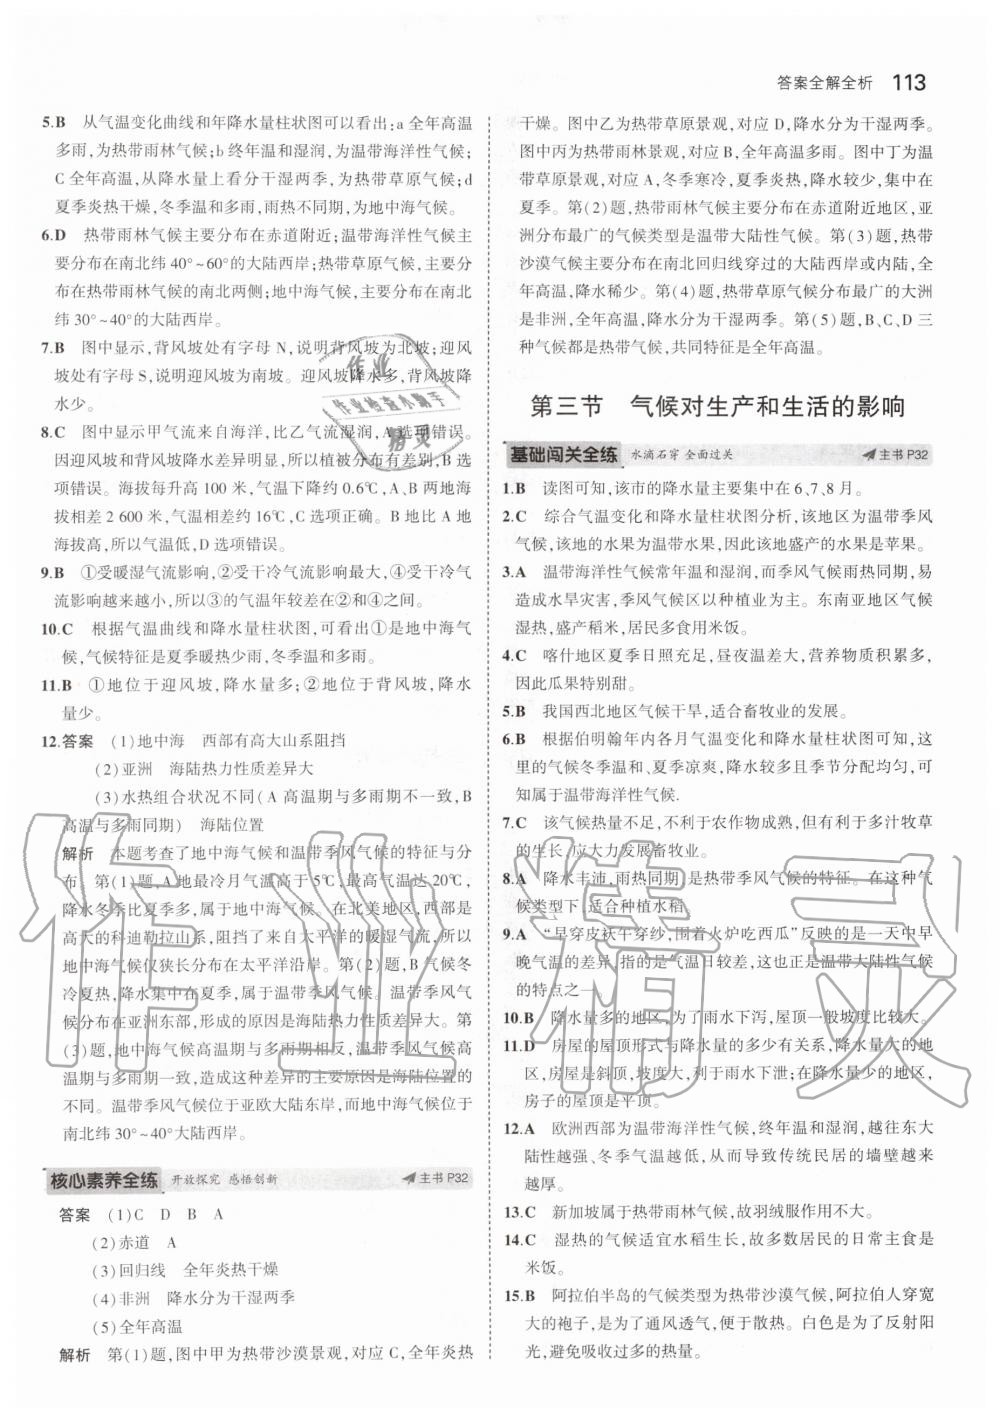 答案全解全析 113
5.B 从气温变化曲线和年降水量柱状图可以看出;a 全年高温
多雨,为热带雨林气候;b终年温和湿润,为温带海洋性气候;
C 全年高温,从降水量上看分干湿两季,为热带草原气候;d
夏季炎热干燥,冬季温和多雨,雨热不同期,为地中海气候。
6.D 热带雨林气候主要分布在赤道附近;温带海洋性气候主
要分布在南北纬40°~60°的大陆西岸;热带草原气候,主要分
布在热带雨林气候的南北两侧;地中海气候,主要分布在南北
纬30°~40°的大陆西岸。
7.B 图中显示,背风坡处有字母 N,说明背风坡为北坡;迎风
坡处有字母 S,说明迎风坡为南坡。迎风坡降水多,背风坡降
水少。
8.C 图中显示甲气流来自海洋,比乙气流湿润,A 选项错误。
因迎风坡和背风坡降水差异明显,所以植被分布有差别,B 选
项错误。海拔每升高 100 米,气温下降约 0.6℃,A、B 两地海
拔相差 2 600 米,气温相差约 16℃,C 选项正确。B 地比 A 地
海拔高,所以气温低,D 选项错误。
9.B ①受暖湿气流影响,②受干冷气流影响最大,④受干冷气
流影响越来越小,所以③的气温年较差在②和④之间。
10.C 根据气温曲线和降水量柱状图,可看出①是地中海气
候,气候特征是夏季暖热少雨,冬季温和多雨。
11.B ①地位于迎风坡,降水量多;②地位于背风坡,降水
量少。
12.答案 (1)地中海 西部有高大山系阻挡
(2)亚洲 海陆热力性质差异大
(3)水热组合状况不同(A 高温期与多雨期不一致,B
高温与多雨同期) 海陆位置
解析 本题考查了地中海气候和温带季风气候的特征与分
布。第(1)题,A 地最冷月气温高于5℃,最高气温达20℃,
降水冬季比夏季多,属于地中海气候。在北美地区,西部是
高大的科迪勒拉山系,阻挡了来自太平洋的暖湿气流,所以
地中海气候仅狭长分布在太平洋沿岸。第(2)题,B气候冬
冷夏热,降水集中在夏季,属于温带季风气候。温带季风气
候分布在亚洲东部,形成的原因是海陆热力性质差异大。第
(3)题,地中海气候高温期与多雨期相反,温带季风气候高
温期与多雨期一致,造成这种差异的主要原因是海陆位置的
不同。温带季风气候位于亚欧大陆东岸,而地中海气候位于
南北纬30°~40°大陆西岸。
核心素养全练 开放探究 感悟创新 主书 P32
答案 (1)C D B A
(2)赤道 A
(3)回归线 全年炎热干燥
(4)非洲 降水分为干湿两季
(5)全年高温
解析 第(1)题,图中甲为热带沙漠景观,对应 C,全年炎热
干燥。图中乙为热带草原景观,对应 D,降水分为干湿两季。
图中丙为热带雨林景观,对应 B,全年高温多雨。图中丁为温
带草原景观,对应 A,冬季寒冷,夏季炎热,降水较少,集中在
夏季。第(2)题,热带雨林气候主要分布在赤道附近地区,亚
洲分布最广的气候类型是温带大陆性气候。第(3)题,热带
沙漠气候主要分布在南北回归线穿过的大陆西岸或内陆,全
年高温,降水稀少。第(4)题,热带草原气候分布最广的大洲
是非洲,全年高温,降水分为干湿两季。第(5)题,B、C、D 三
种气候都是热带气候,共同特征是全年高温。
第三节 气候对生产和生活的影响
基础闯关全练 水滴石穿 全面过关 主书 P32
1.B 读图可知,该市的降水量主要集中在 6、7、8 月。
2.C 综合气温变化和降水量柱状图分析,该地区为温带季风
气候,该地的水果为温带水果,因此该地盛产的水果是苹果。
3.A 温带海洋性气候常年温和湿润,而季风气候雨热同期,易
造成水旱灾害,季风气候区以种植业为主。东南亚地区气候
湿热,盛产稻米,居民多食用米饭。
4.C 喀什地区夏季日照充足,昼夜温差大,营养物质积累多,
因此瓜果特别甜。
5.B 我国西北地区气候干旱,适合畜牧业的发展。
6.B 根据伯明翰年内各月气温变化和降水量柱状图可知,这
里的气候冬季温和、夏季凉爽,降水较多且季节分配均匀,可
知属于温带海洋性气候.
7.C 该气候热量不足,不利于农作物成熟,但有利于多汁牧草
的生长,应大力发展畜牧业。
8.A 降水丰沛,雨热同期,是热带季风气候的特征。在这种气
候类型下,适合种植水稻。
9.A “早穿皮袄午穿纱,围着火炉吃西瓜”反映的是一天中早
晚气温的差异,指的是气温日较差,这也正是温带大陆性气候
的特点之一。
10.B 降水量多的地区,为了雨水下泻,屋顶一般坡度比较大。
11.D 房屋的屋顶形式与降水量的多少有关系,降水量大的地
区,房屋是斜顶,坡度大,利于雨水下泄;在降水量少的地区,
房子的屋顶是平顶。
12.A 欧洲西部为温带海洋性气候,终年温和湿润,越往东大
陆性越强、冬季气温越低,从而导致传统民居的墙壁越来
越厚。
13.C 新加坡属于热带雨林气候,故羽绒服作用不大。
14.C 湿热的气候适宜水稻生长,故多数居民的日常主食是
米饭。
15.B 阿拉伯半岛的气候类型为热带沙漠气候,阿拉伯人穿宽
大的袍子,是为了通风透气,便于散热。白色是为了反射阳
光,避免吸收过多的热量。
作业
作业检查小助手
精灵
作业精灵